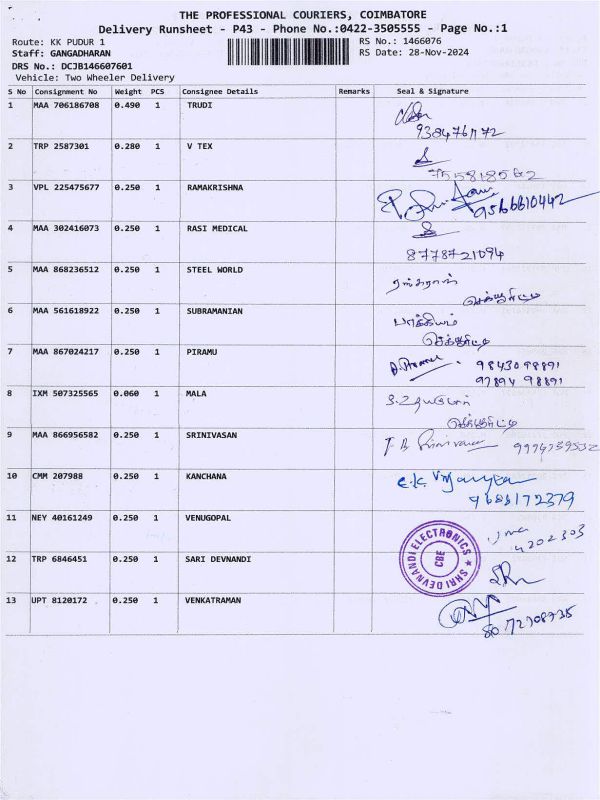 THE PROFESSIONAL COURIERS, COIMBATORE
Delivery Runsheet - P43 - Phone No.:0422-3505555 - Page No.:1
Route: KK PUDUR 1
Staff: GANGADHARAN
DRS No.: DCJB146607601
Vehicle: Two Wheeler Delivery
RS No.: 1466076
RS Date: 28-Nov-2024
S No Consignment No Weight PCS Consignee Details Remarks Seal & Signature
1 MAA 706186708 0.490 1 TRUDI
2 TRP 2587301 0.280 1 V TEX
3 VPL 225475677 0.250 1 RAMAKRISHNA
9566610442
4 MAA 302416073 0.250 1 RASI MEDICAL
8778721094
5 MAA 868236512 0.250 1 STEEL WORLD
6 MAA 561618922 0.250 1 SUBRAMANIAN
பாக்கியம்
7 MAA 867024217 0.250 1 PIRAMU
98430 98891
97894 98891
8 IXM 507325565 0.060 1 MALA
9 MAA 866956582 0.250 1 SRINIVASAN
10 CMM 207988 0.250 1 KANCHANA
11 NEY 40161249 0.250 1 VENUGOPAL
4202303
12 TRP 6846451 0.250 1 SARI DEVNANDI
SHRI DEVNANDI ELECTRONICS
CBE
13 UPT 8120172 0.250 1 VENKATRAMAN